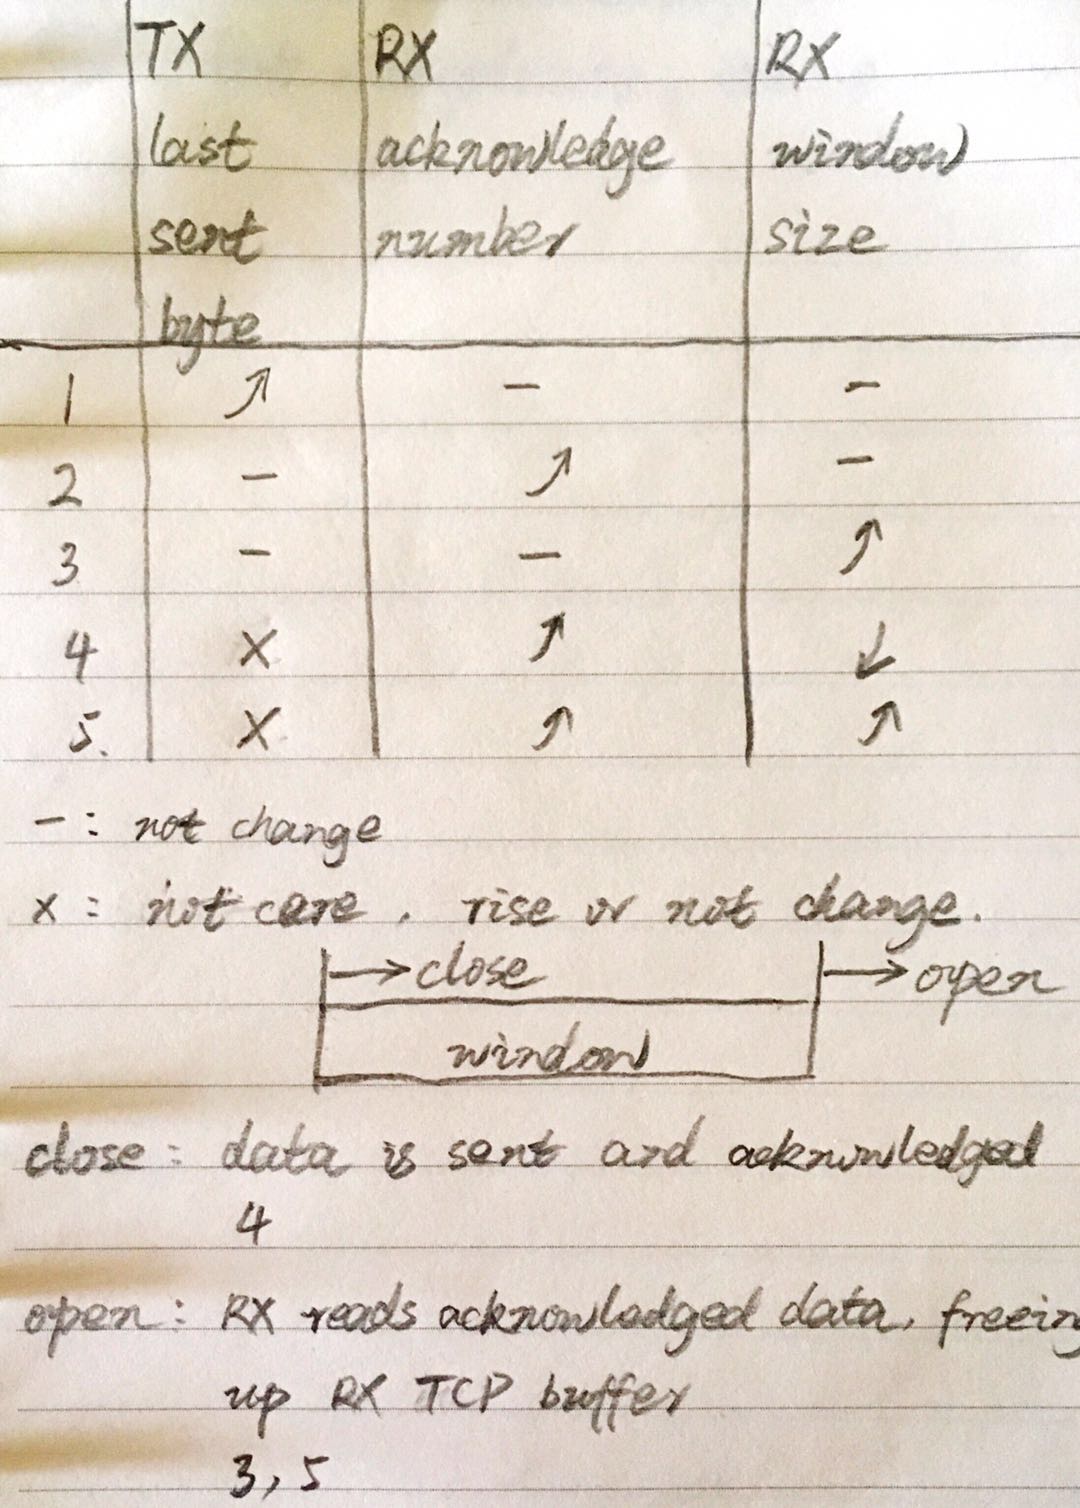 TX RX RX
last acknowledge window
sent number size
byte
1 ↗ - -
2 - ↗ -
3 - - ↗
4 X ↗ ↙
5. X ↗ ↗
- : not change
x : not care, rise or not change.
→ close → open
window
close : data is sent and acknowledged
4
open : RX reads acknowledged data, freeing
up RX TCP buffer
3, 5